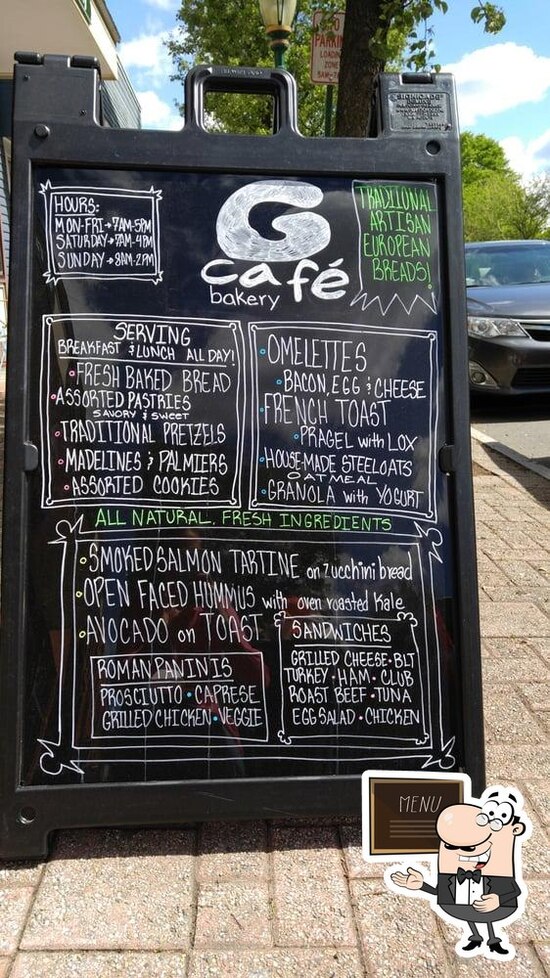 PARKIN
LOADIN
ZONE
HOURS:
MON-FRI→7AM-5PM
SATURDAY→7AM-4PM
SUNDAY→8AM-2PM
G
café
bakery
TRADITIONAL
ARTISAN
EUROPEAN
BREADS!
SERVING
BREAKFAST & LUNCH ALL DAY!
• FRESH BAKED BREAD
• ASSORTED PASTRIES
SAVORY & SWEET
• TRADITIONAL PRETZELS
• MADELINES & PALMIERS
• ASSORTED COOKIES
• OMELETTES
• BACON, EGG & CHEESE
• FRENCH TOAST
• PRAGEL with LOX
• HOUSE-MADE STEELOATS
OATMEAL
• GRANOLA with YOGURT
ALL NATURAL, FRESH INGREDIENTS
• SMOKED SALMON TARTINE on zucchini bread
• OPEN FACED HUMMUS with oven roasted Kale
• AVOCADO on TOAST
ROMAN PANINIS
PROSCIUTTO • CAPRESE
GRILLED CHICKEN • VEGGIE
SANDWICHES
GRILLED CHEESE • BLT
TURKEY • HAM • CLUB
ROAST BEEF • TUNA
EGG SALAD • CHICKEN
MENU